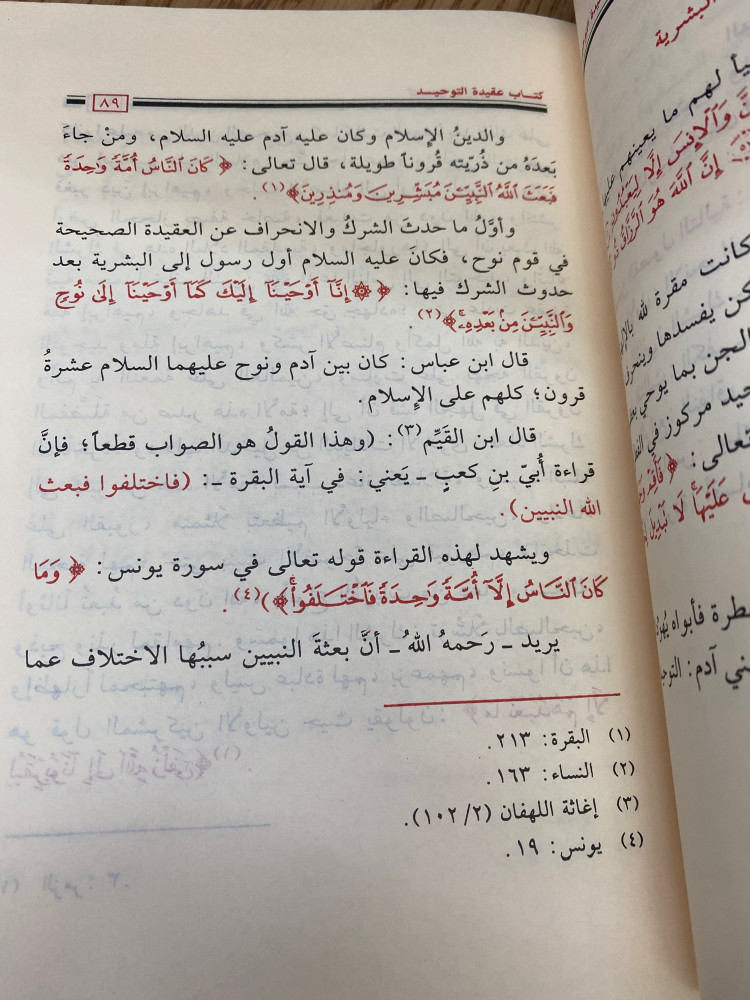 كتاب عقيدة التوحيد
٨٩
والدينُ الإسلام وكان عليه آدم عليه السلام، ومنْ جاءَ
بَعدَهُ من ذُريّته قُروناً طويلة، قال تعالى: ﴿ كَانَ ٱلنَّاسُ أُمَّةً وَٰحِدَةً
فَبَعَثَ ٱللَّهُ ٱلنَّبِيِّـۧنَ مُبَشِّرِينَ وَمُنذِرِينَ﴾(١).
وأوَّلُ ما حدثَ الشركُ والانحراف عن العقيدة الصحيحة
في قوم نوح، فكانَ عليه السلام أول رسول إلى البشرية بعد
حدوث الشرك فيها: ﴿ ۞ إِنَّآ أَوْحَيْنَآ إِلَيْكَ كَمَآ أَوْحَيْنَآ إِلَىٰ نُوحٍ
وَٱلنَّبِيِّـۧنَ مِنۢ بَعْدِهِۦۚ﴾(٢).
قال ابن عباس: كان بين آدم ونوح عليهما السلام عشرةُ
قرون؛ كلهم على الإسلام.
قال ابن القَيِّم(٣): (وهذا القولُ هو الصواب قطعاً؛ فإنَّ
قراءة أُبيّ بنِ كعبٍ ـ يَعني: في آية البقرة ـ: (فاختلفوا فبعث
الله النبيين).
ويشهد لهذه القراءة قوله تعالى في سورة يونس: ﴿ وَمَا
كَانَ ٱلنَّاسُ إِلَّآ أُمَّةً وَٰحِدَةً فَٱخْتَلَفُوا۟ۚ﴾)(٤).
يريد ـ رَحمهُ اللهُ ـ أنَّ بعثةَ النبيين سببُها الاختلاف عما
(١) البقرة: ٢١٣.
(٢) النساء: ١٦٣.
(٣) إغاثة اللهفان (١٠٢/٢).
(٤) يونس: ١٩.
البشرية
لهم ما يعينهم
وَٱلْإِنسَ إِلَّا
إِنَّ ٱللَّهَ هُوَ
كانت مقرة لله
يفسدها
الجن بما يوحي
مركوز في
تعالى:
عَلَيْهَا لَا تَبْدِيلَ
فأبواه
آدم: